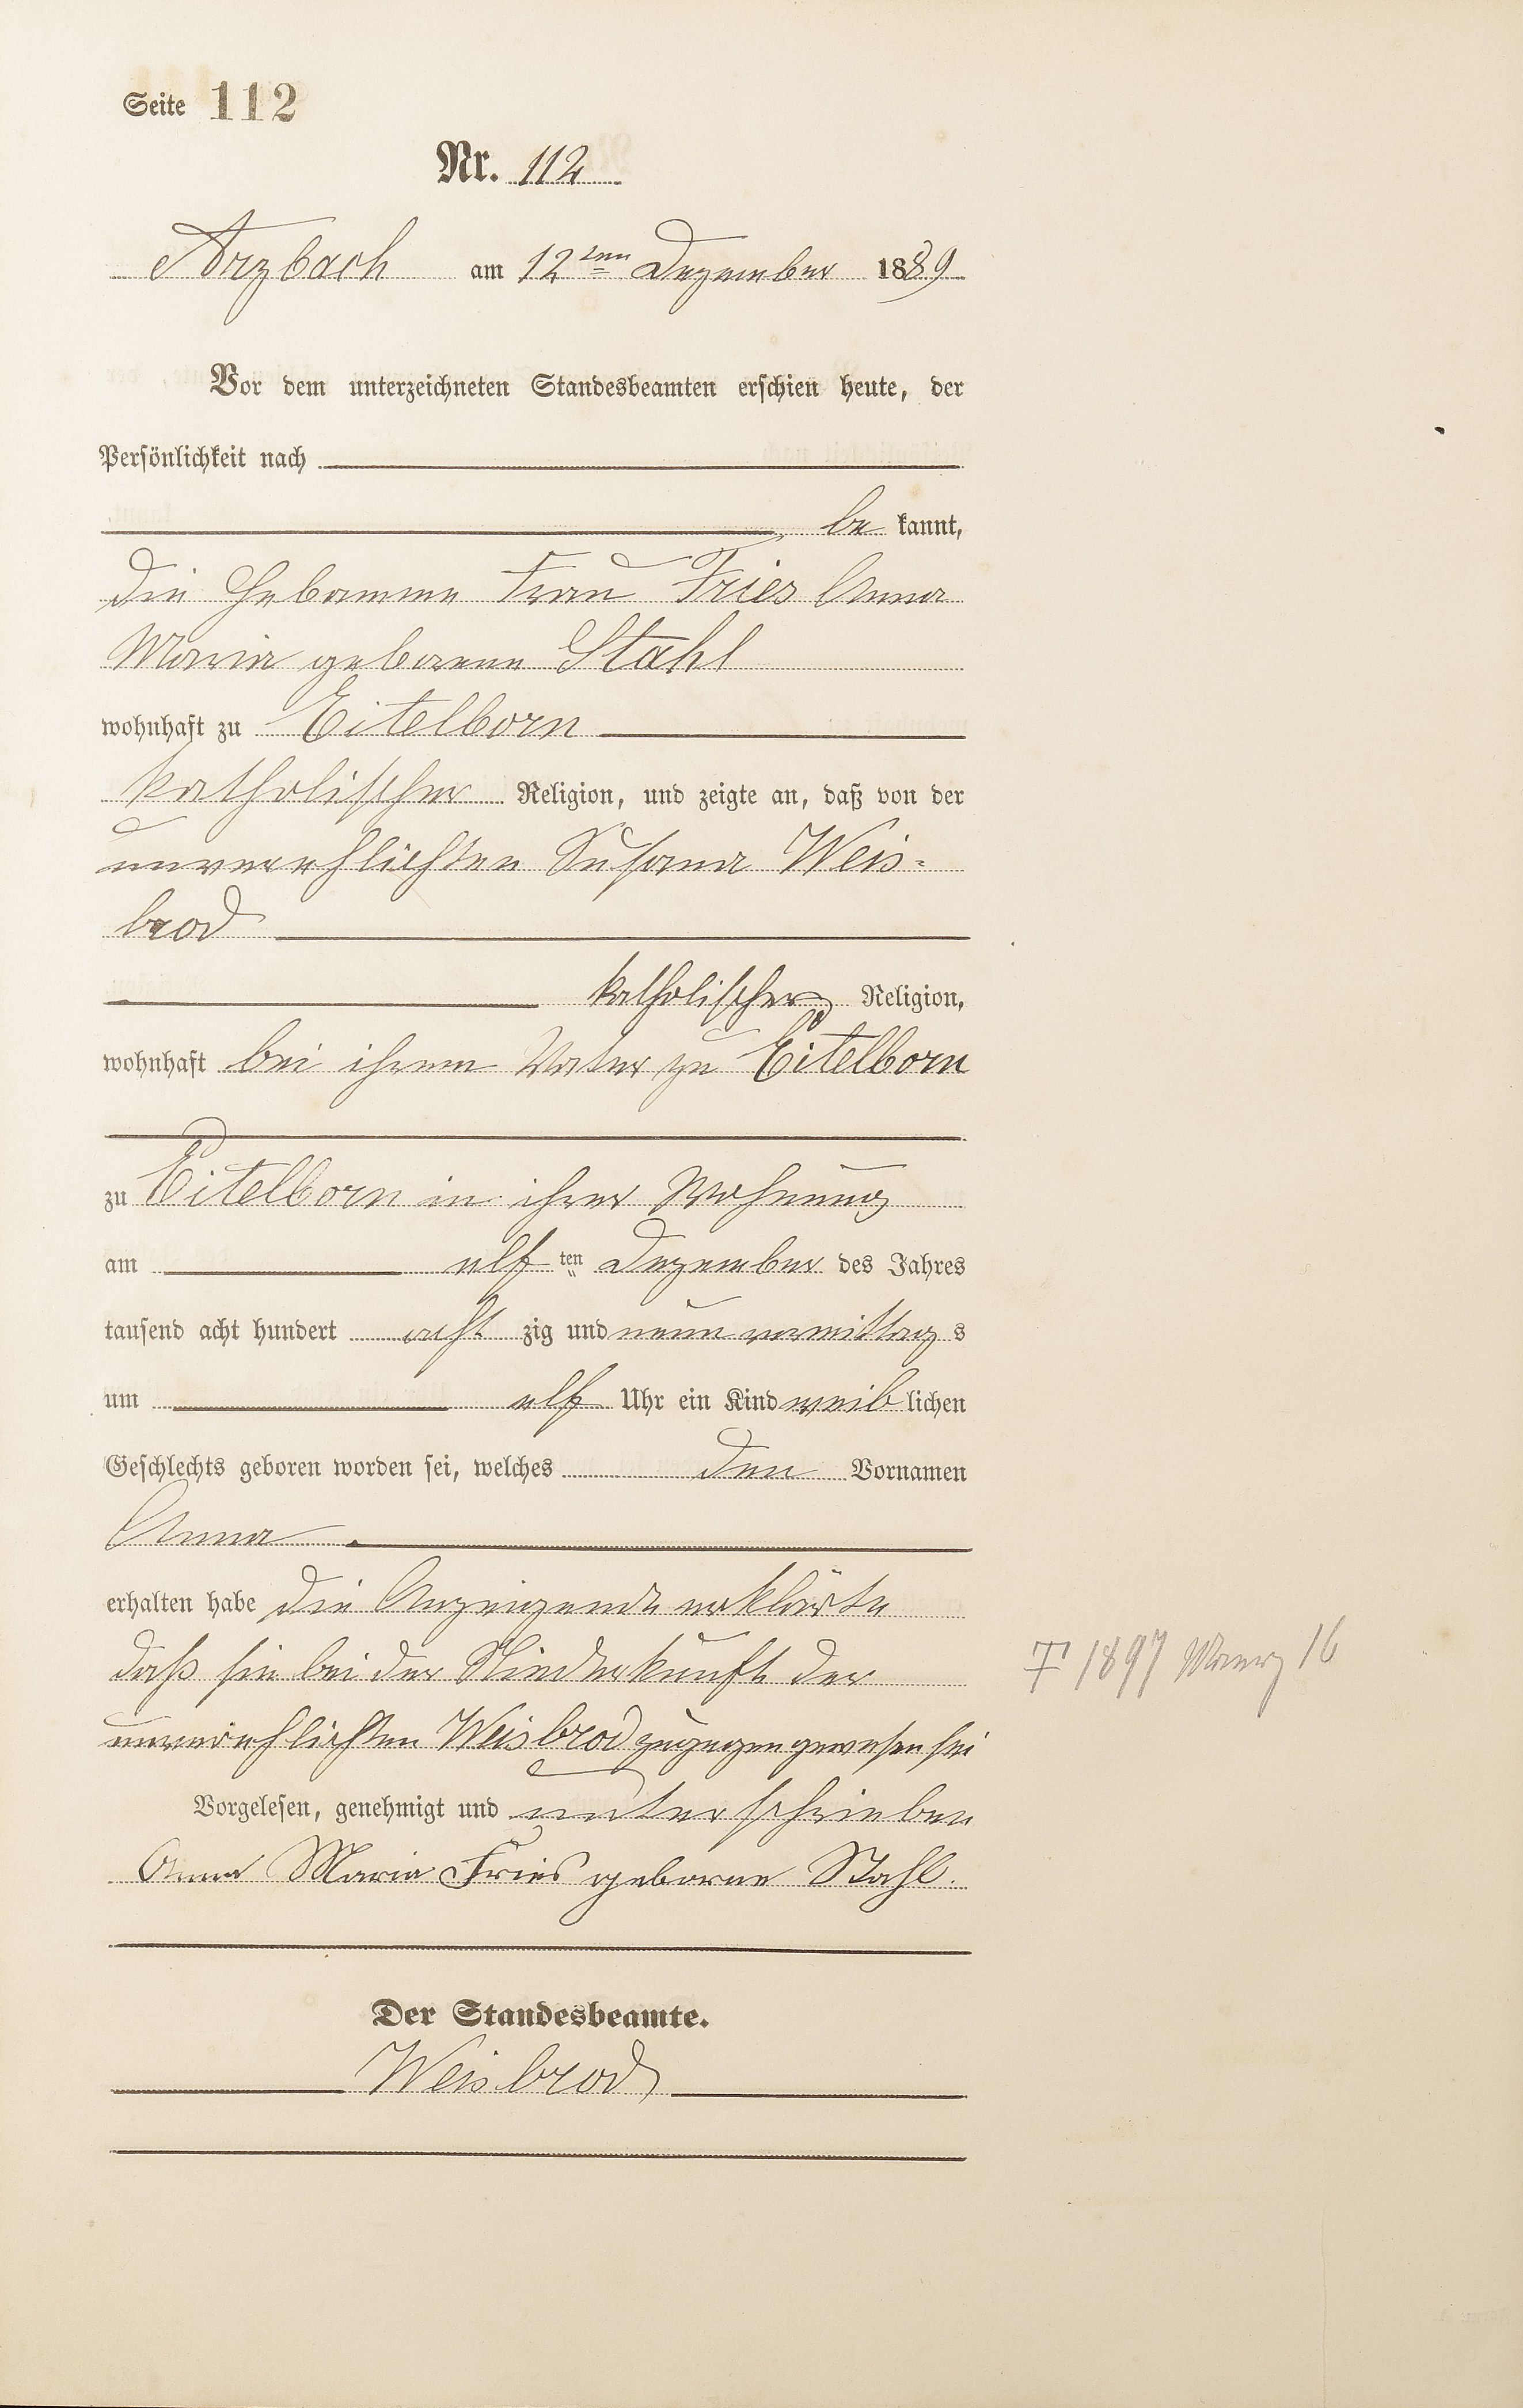 Seite 112
Nr. 112
Arzbach am 12ten Dezember 1889
Vor dem unterzeichneten Standesbeamten erschien heute, der
Persönlichkeit nach
be kannt,
die Hebamme Frau Fries Anna
Maria geborene Stahl
wohnhaft zu Eitelborn
katholischer Religion, und zeigte an, daß von der
unverehlichten Susana Weis-
brod
katholischer Religion,
wohnhaft bei ihrem Vater zu Eitelborn
zu Eitelborn in ihrer Wohnung
am elf ten Dezember des Jahres
tausend acht hundert acht zig und neun vormittag s
um elf Uhr ein Kind weib lichen
Geschlechts geboren worden sei, welches den Vornamen
Anna
erhalten habe die Anzeigende erklärte
daß sie bei der Niederkunft der
unverehlichten Weisbrod zugegen gewesen sei
† 1897 Maerz 16
Vorgelesen, genehmigt und unterschrieben
Anna Maria Fries geborne Stahl.
Der Standesbeamte.
Weisbrod